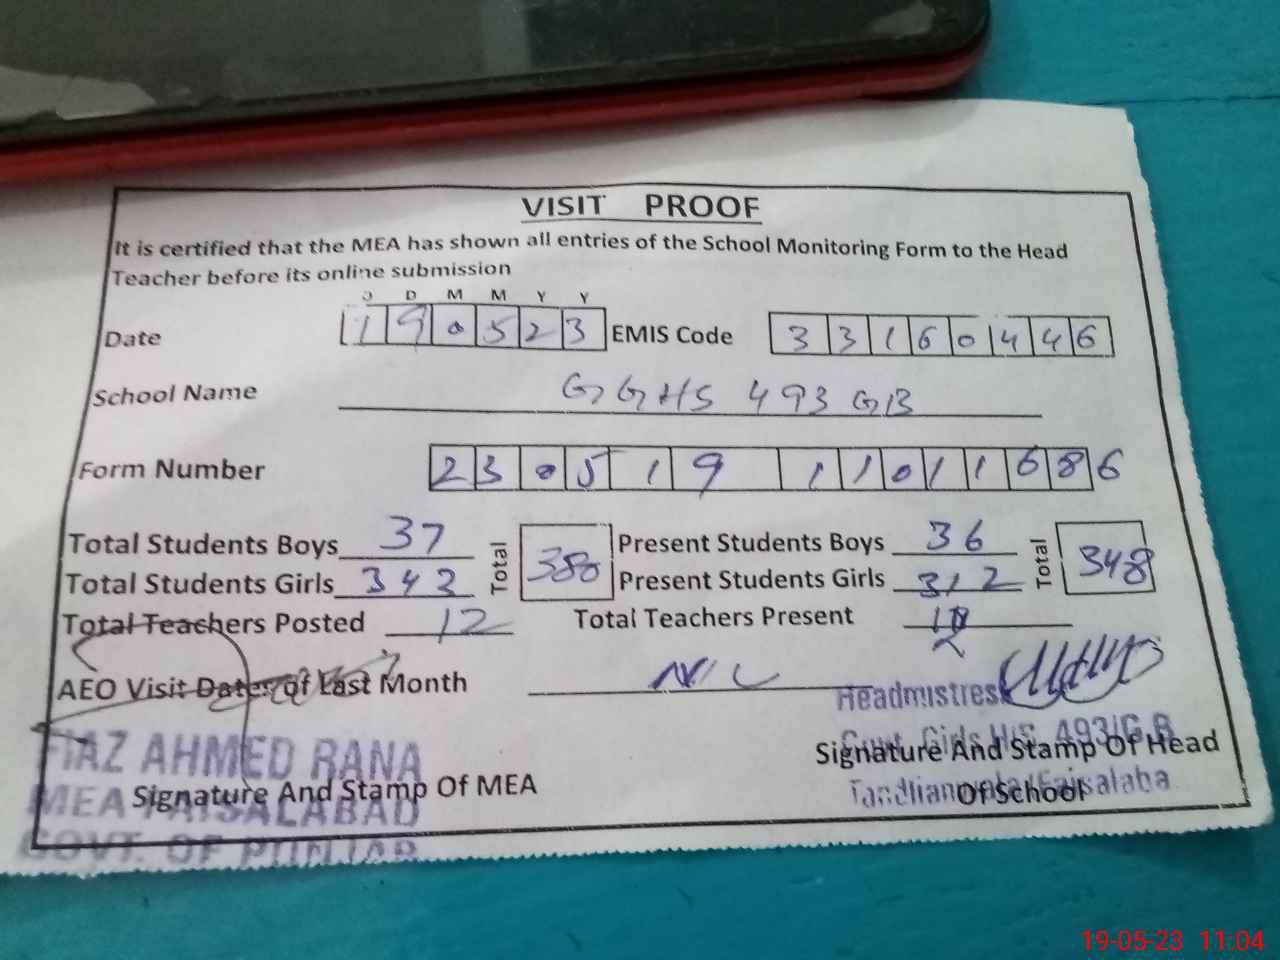 VISIT PROOF
It is certified that the MEA has shown all entries of the School Monitoring Form to the Head
Teacher before its online submission
D D M M Y Y
Date 19 05 23 EMIS Code 33160446
School Name GGHS 493 GB
Form Number 23 05 19 11011686
Total Students Boys 37 Total 380 Present Students Boys 36 Total 348
Total Students Girls 343 Present Students Girls 312
Total Teachers Posted 12 Total Teachers Present
AEO Visit Dates of Last Month NIL
Headmistress
Govt. Girls H/S 493/G.B
Tandlianwala/Faisalaba
Signature And Stamp Of Head
Of School
FIAZ AHMED RANA
MEA FAISALABAD
GOVT. OF PUNJAB
Signature And Stamp Of MEA
19-05-23 11:04